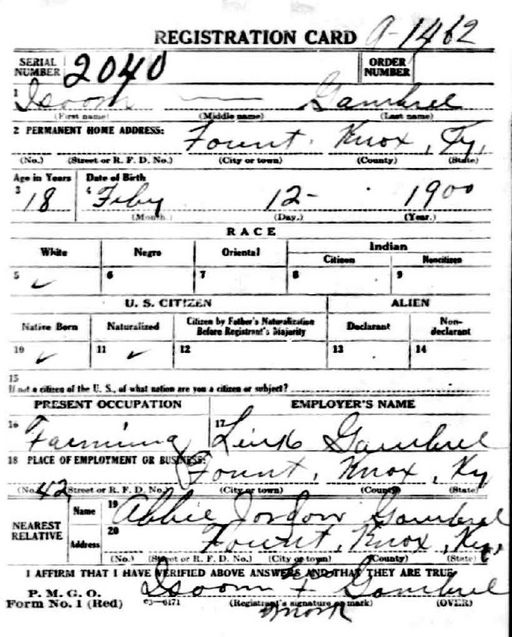 REGISTRATION CARD a-1462
SERIAL NUMBER 2040 ORDER NUMBER
1 Isoom — Gambrel
(First name) (Middle name) (Last name)
2 PERMANENT HOME ADDRESS: Fount, Knox, Ky,
(No.) (Street or R. F. D. No.) (City or town) (County) (State)
Age in Years Date of Birth
3 18 4 Feby 12- 1900
(Month.) (Day.) (Year.)
RACE
White Negro Oriental Indian
Citizen Noncitizen
5 ✓ 6 7 8 9
U. S. CITIZEN ALIEN
Native Born Naturalized Citizen by Father's Naturalization Before Registrant's Majority Declarant Non-declarant
10 ✓ 11 ✓ 12 13 14
15
If not a citizen of the U. S., of what nation are you a citizen or subject?
PRESENT OCCUPATION EMPLOYER'S NAME
16 Farming 17 Link Gambrel
18 PLACE OF EMPLOYMENT OR BUSINESS:
Fount, Knox, Ky
(No.) 42 (Street or R. F. D. No.) (City or town) (County) (State)
NEAREST RELATIVE Name 19 Abbie Jordon Gambrel
Address 20 Fount, Knox, Ky,
(No.) (Street or R. F. D. No.) (City or town) (County) (State)
I AFFIRM THAT I HAVE VERIFIED ABOVE ANSWERS AND THAT THEY ARE TRUE
P. M. G. O.
Form No. 1 (Red) 03—6171 Isoom Gambrel
(Registrant's signature or mark) (OVER)
mark